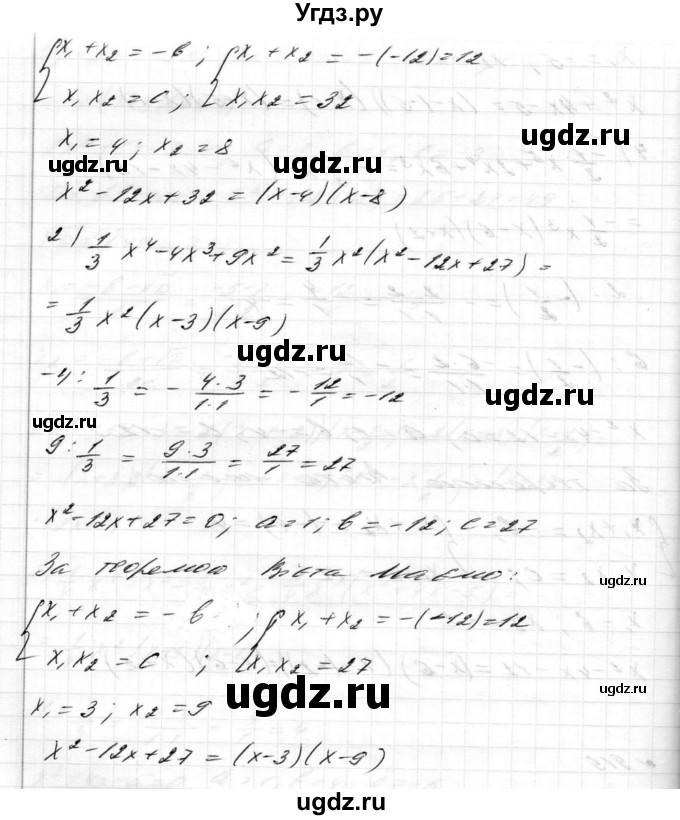 Угдз.ру
{x₁ + x₂ = -в ; {x₁ + x₂ = -(-12) = 12
{x₁x₂ = c ; {x₁x₂ = 32
x₁ = 4 ; x₂ = 8
ugdz.ru ugdz.ru
x² - 12x + 32 = (x-4)(x-8)
2) 1/3 x⁴ - 4x³ + 9x² = 1/3 x² (x² - 12x + 27) =
= 1/3 x² (x-3)(x-9)
ugdz.ru
-4 : 1/3 = - 4·3/1·1 = - 12/1 = -12
ugdz.ru
ugdz.ru
9 : 1/3 = 9·3/1·1 = 27/1 = 27
x² - 12x + 27 = 0; a = 1; в = -12; c = 27
За теоремою Вієта маємо:
ugdz.ru
{x₁ + x₂ = -в ; {x₁ + x₂ = -(-12) = 12
{x₁x₂ = c ; {x₁x₂ = 27
ugdz.ru ugdz.ru
x₁ = 3 ; x₂ = 9
x² - 12x + 27 = (x-3)(x-9)
ugdz.ru
ugdz.ru